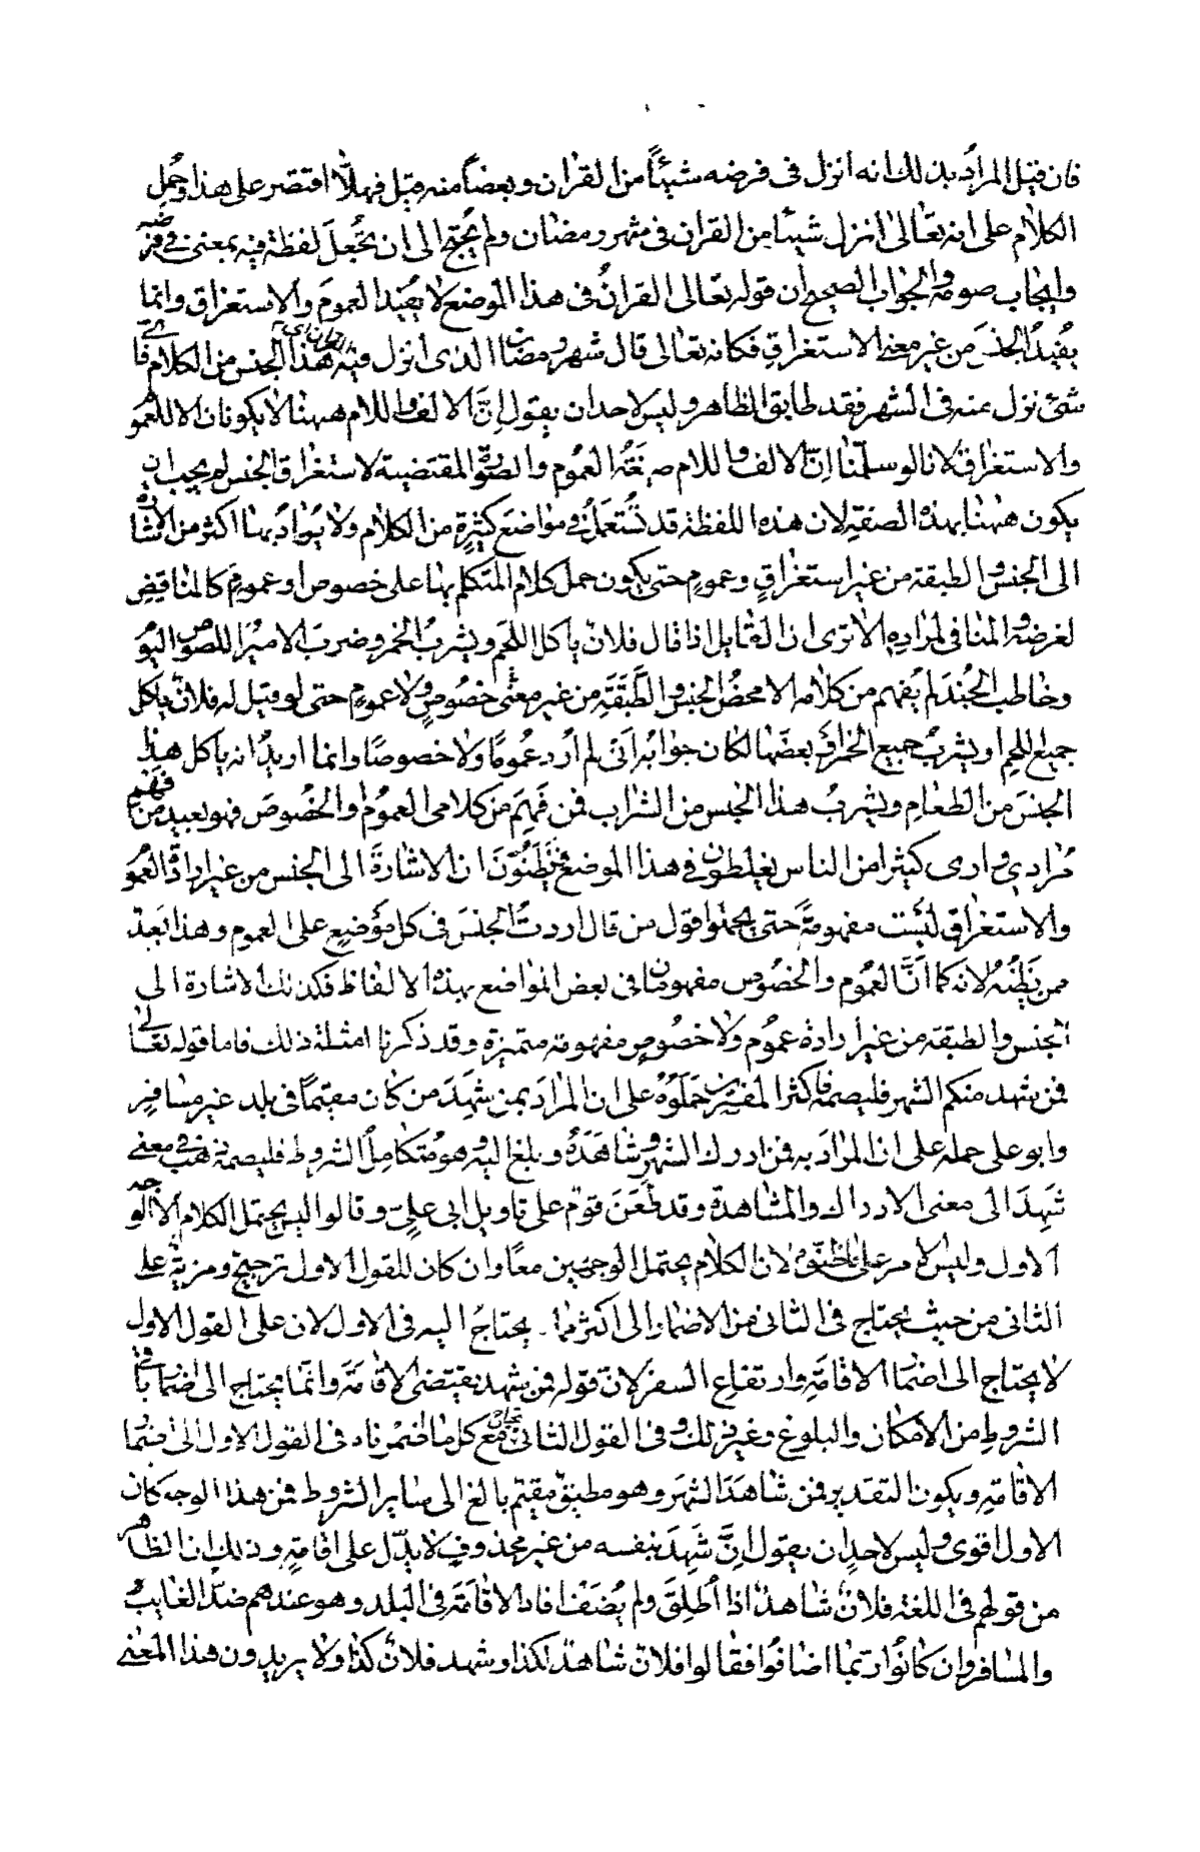 فان قيل المراد بذلك انه انزل فى فرضه شيئاً من القران وبعضاً منه قيل فهلاّ اقتصر على هذا وحمل
الكلام على انه تعالى انزل شيئا من القران فى شهر رمضان ولم يحتج الى ان يجعل لفظة فيه بمعنى فى فرضه
وايجاب صومه والجواب الصحيح ان قوله تعالى القران فى هذا الموضع لا يفيد العموم والاستغراق وانما
يفيد الجنس من غير معنى الاستغراق فكانه تعالى قال شهر رمضان الذى انزل فيه هذا الجنس من الكلام فاى
شئ نزل منه فى الشهر فقد طابق الظاهر وليس لاحد ان يقول انّ الالف واللام ههنا لا يكونان الا للعموم
والاستغراق لانا لو سلمنا انّ الالف واللام صيغة العموم والصورة المقتضية لاستغراق الجنس لم يجب ان
يكون ههنا بهذه الصفة لان هذه اللفظة قد تستعمل فى مواضع كثيرة من الكلام ولا يراد بها اكثر من الاشارة
الى الجنس والطبقة من غير استغراق وعموم حتى يكون حمل كلام المتكلم بها على خصوص او عموم كالمناقض
لغرضه والمنافى لمراده الا ترى ان القايل اذا قال فلان ياكل اللحم ويشرب الخمر وضرب الامير اللصوص اليوم
وخاطب الجند لم يفهم من كلامه الا محض الجنس والطبقة من غير معنى خصوص ولا عموم حتى لو قيل له فلان ياكل
جميع اللحم او يشرب جميع الخمر او بعضها لكان جوابه اننى لم ارد عموما ولا خصوصا وانما اريد انه ياكل هذا
الجنس من الطعام ويشرب هذا الجنس من الشراب فمن فهم من كلامى العموم والخصوص فهو بعيد من فهم
مرادى وارى كثيرا من الناس يغلطون فى هذا الموضع فيظنون ان الاشارة الى الجنس من غير ارادة العموم
والاستغراق ليست مفهومة حتى يحملوا قول من قال اردت الجنس فى كل موضع على العموم وهذا بعيد
ممن يظنه لانه كما انّ العموم والخصوص مفهومان فى بعض المواضع بهذه الالفاظ فكذلك الاشارة الى
الجنس والطبقة من غير ارادة عموم ولا خصوص مفهومة متميزة وقد ذكرنا امثلة ذلك فاما قوله تعالى
فمن شهد منكم الشهر فليصمه فاكثر المفسرين حملوه على ان المراد بمن شهد من كان مقيما فى بلد غير مسافر
وابو على حمله على ان المراد به فمن ادرك الشهر وشاهده وبلغ اليه وهو متكامل الشروط فليصمه ذهب فى معنى
شهد الى معنى الادراك والمشاهدة وقد طعن قوم على تاويل ابى على وقالوا ليس يحتمل الكلام الا الوجه
الاول وليس الامر على ما ظنّوه لان الكلام يحتمل الوجهين معا وان كان للقول الاول ترجيح ومزية على
الثانى من حيث يحتاج فى الثانى من الاضمار الى اكثر مما يحتاج اليه فى الاول لان على القول الاول
لا يحتاج الى اضمار الاقامة وارتفاع السفر لان قوله فمن شهد يقتضى الاقامة وانما يحتاج الى اضمار باقى
الشروط من الامكان والبلوغ وغير ذلك وفى القول الثانى يحتاج مع كل ما اضمرناه فى القول الاول الى اضمار
الاقامة ويكون التقدير فمن شاهد الشهر وهو مطيق مقيم بالغ الى ساير الشروط فمن هذا الوجه كان
الاول اقوى وليس لاحد ان يقول انّ شهد بنفسه من غير محذوف لا يدل على اقامة وذلك ان الظاهر
من قولهم فى اللغة فلان شاهد اذا اطلق ولم يضف افاد الاقامة فى البلد وهو عندهم ضد الغايب
والمسافر وان كانوا ربما اضافوا فقالوا فلان شاهد لكذا وشهد فلان كذا ولا يريدون هذا المعنى